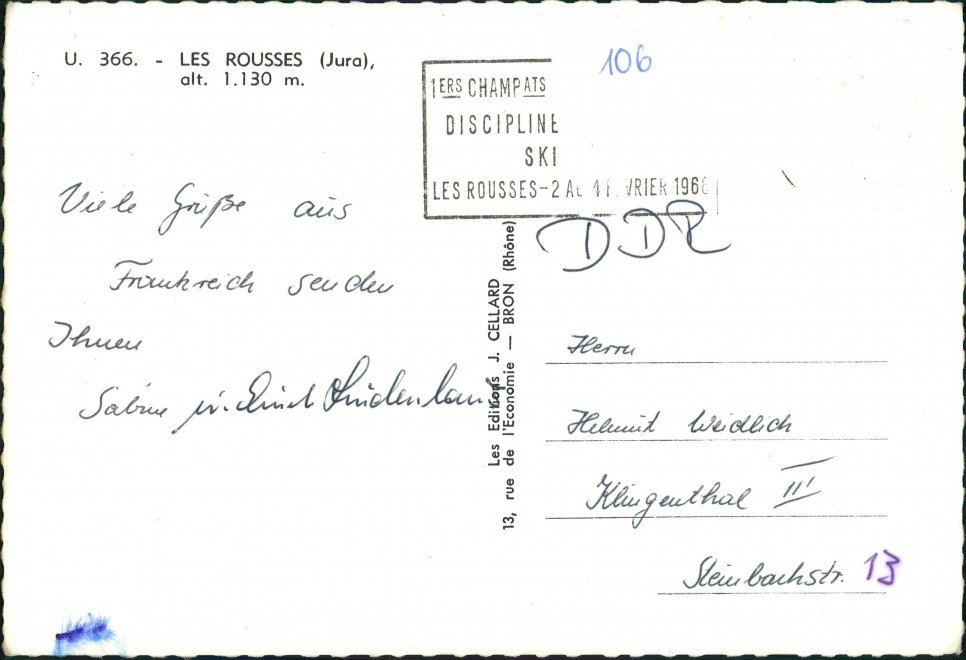 U. 366. - LES ROUSSES (Jura),
alt. 1.130 m.
106
1ERS CHAMPATS
DISCIPLINE
SKI
LES ROUSSES-2 AU 4 F VRIER 196
Viele Grüße aus
Frankreich senden
Ihnen
Sabine u.
DDR
Herrn
Helmut Weidlich
Klingenthal III
Steinbachstr. 13
Les Editions J. CELLARD
13, rue de l'Economie — BRON (Rhône)